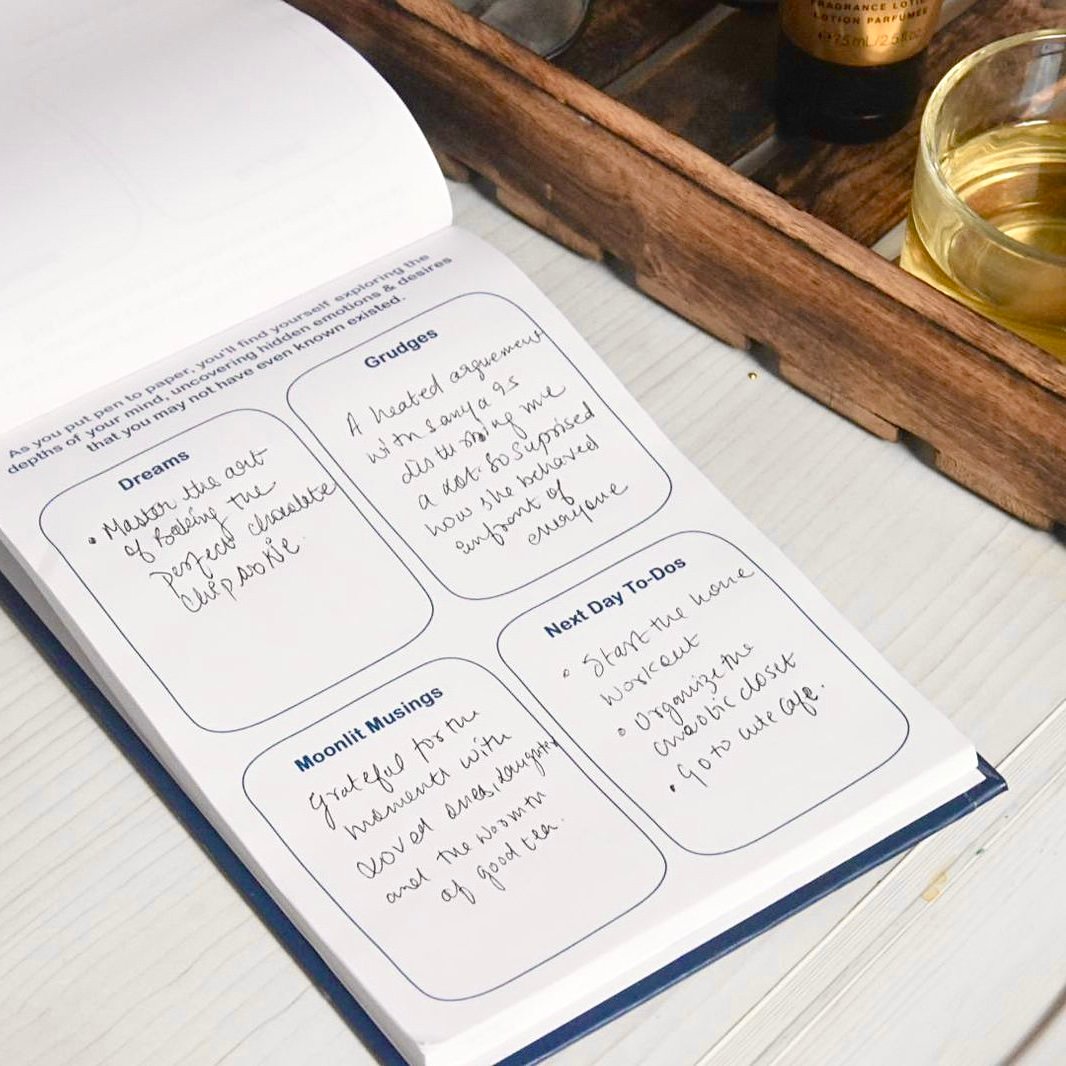 FRAGRANCE LOTION
LOTION PARFUMÉE
75 mL/2.5 fl oz
As you put pen to paper, you'll find yourself exploring the
depths of your mind, uncovering hidden emotions & desires
that you may not have even known existed.
Dreams
• Master the art
of Baking the
perfect chocolate
chip cookie.
Grudges
A heated arguement
with sanya is
disturbing me
a lot. So suprised
how she behaved
infront of
everyone
Moonlit Musings
grateful for the
moments with
loved ones, laughter
and the warmth
of good tea.
Next Day To-Dos
• Start the home
workout
• Organize the
chaotic closet
• Go to cute cafe.